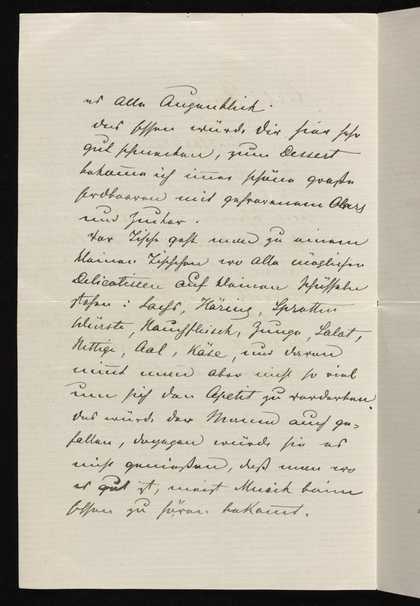 es alle Augenblick.
das Essen würde Dir hier sehr
gut schmecken, zum Dessert
bekomme ich immer schöne große
Erdbeeren mit gefrorenem Obers
und Zucker.
Vor Tische geht man zu einem
kleinen Tischchen wo alle möglichen
Delicatissen auf kleinen Schüsseln
stehen: Lachs, Häring, Sprotten
Würste, Rauchfleisch, Zunge, Salat,
Rettige, Aal, Käse, und davon
nimt man aber nicht so viel
um sich den Apetit zu verderben
das würde der Mama auch ge-
fallen, dagegen würde sie es
nicht genießen, daß man wo
es gut ist, meist Musick beim
Essen zu hören bekomt.